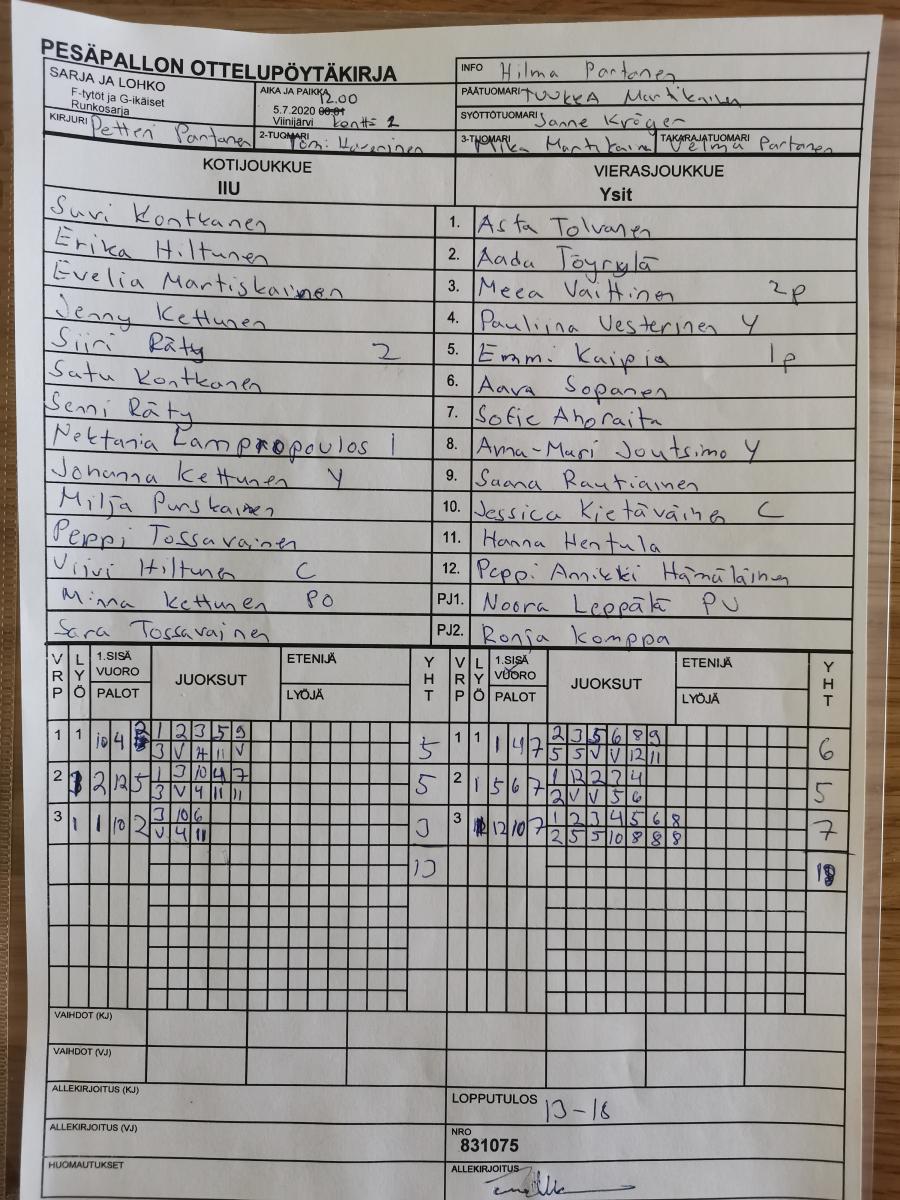 PESÄPALLON OTTELUPÖYTÄKIRJA
SARJA JA LOHKO
F-tytöt ja G-ikäiset
Runkosarja
AIKA JA PAIKKA 12.00
5.7.2020 00:01
Viinijärvi kenttä 2
INFO Hilma Partanen
PÄÄTUOMARI TUUKKA Martikainen
SYÖTTÖTUOMARI Janne Kröger
KIRJURI Petteri Partanen
2-TUOMARI Tomi
3-TUOMARI Mika Martikainen
TAKARAJATUOMARI Velma Partanen
KOTIJOUKKUE
IIU
VIERASJOUKKUE
Ysit
Suvi Kontkanen 1. Asta Tolvanen
Erika Hiltunen 2. Aada Töyrylä
Evelia Martiskainen 3. Meea Väittinen 2p
Jenny Kettunen 4. Pauliina Vesterinen Y
Siiri Räty 2 5. Emmi Kaipia 1p
Satu Kontkanen 6. Aava Sopanen
Senni Räty 7. Sofie Ahoraita
Nektaria Lampropoulos 1 8. Anna-Mari Joutsimo Y
Johanna Kettunen Y 9. Saana Rautiainen
Milja Purskainen 10. Jessica Kietäväinen C
Peppi Tossavainen 11. Hanna Hentula
Viivi Hiltunen C 12. Peppi Annikki Hämäläinen
Minna Kettunen PO PJ1. Noora Leppälä PV
Sara Tossavainen PJ2. Ronja Komppa
VRP LYÖ 1.SISÄ VUORO PALOT JUOKSUT ETENIJÄ LYÖJÄ YHT VRP LYÖ 1.SISÄ VUORO PALOT JUOKSUT ETENIJÄ LYÖJÄ YHT
1 1 10 4 1 2 3 5 9 5 1 1 1 4 7 2 3 5 6 8 9 6
3 V 4 11 V 5 5 V V 12 11
2 2 12 5 1 3 10 4 7 5 2 1 5 6 7 1 12 2 3 4 5
3 V 4 11 11 2 V V 5 6
3 1 1 10 2 3 10 6 3 3 12 10 7 1 2 3 4 5 6 8 7
V 4 11 2 5 5 10 8 8 8
13 18
VAIHDOT (KJ)
VAIHDOT (VJ)
ALLEKIRJOITUS (KJ)
LOPPUTULOS 13-18
ALLEKIRJOITUS (VJ)
NRO
831075
HUOMAUTUKSET
ALLEKIRJOITUS